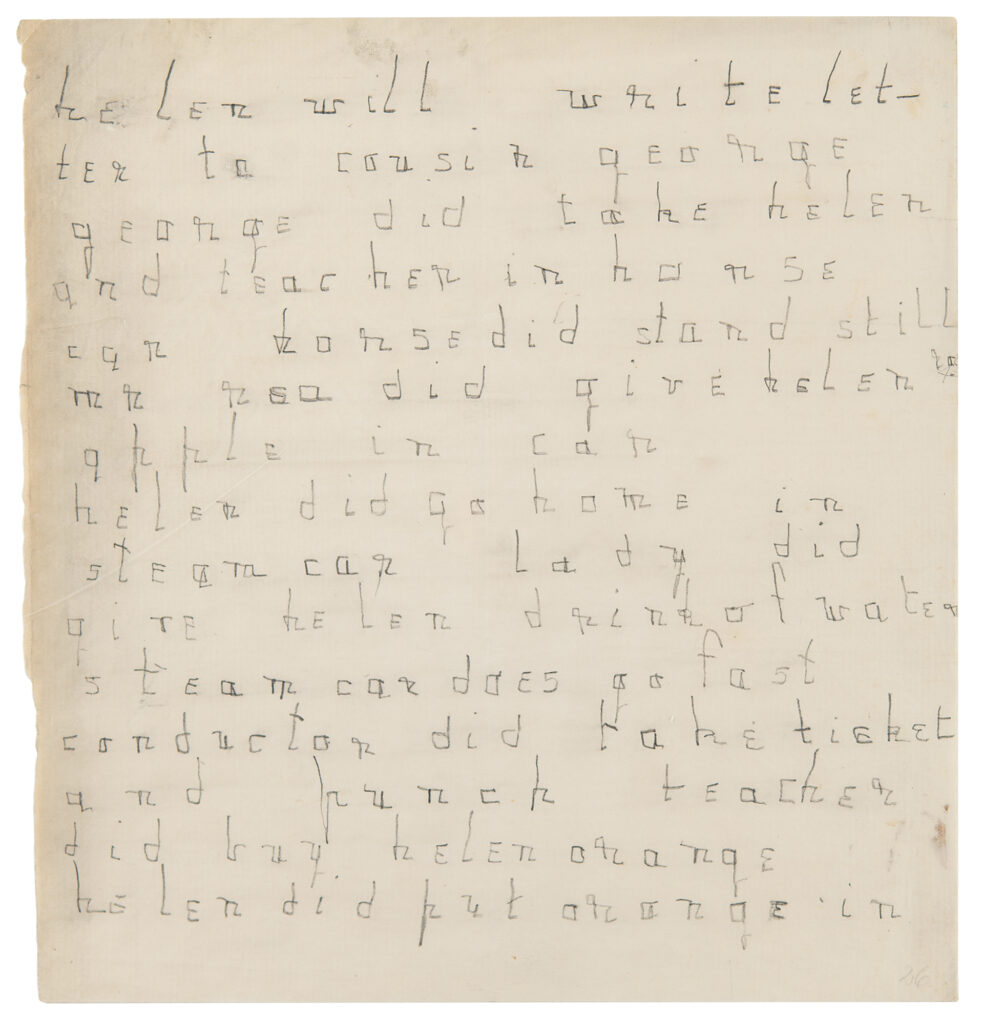 helen will write let-
ter to cousin george
george did take helen
and teacher in horse
car horse did stand still
mr rea did give helen
apple in car
helen did go home in
steam car lady did
give helen drink of water
steam car does go fast
conductor did take ticket
and punch teacher
did buy helen orange
helen did put orange in